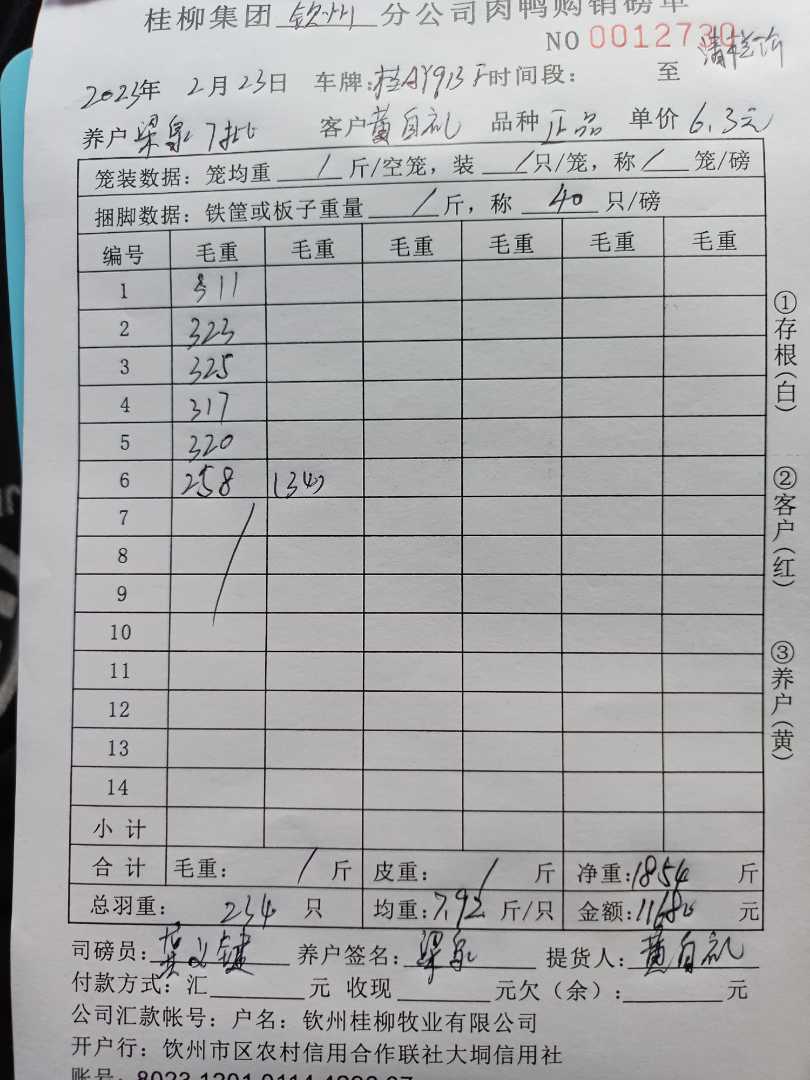 桂柳集团 钦州 分公司肉鸭购销磅单
NO 0012730
2023年 2月23日 车牌:桂AY913F时间段: 至
养户 梁家7批 客户 黄自礼 品种 正品 单价 6.3元
笼装数据: 笼均重 / 斤/空笼, 装 / 只/笼, 称 / 笼/磅
捆脚数据: 铁筐或板子重量 / 斤, 称 40 只/磅
编号 毛重 毛重 毛重 毛重 毛重 毛重
1 311
2 323
3 325
4 317
5 320
6 258 (34)
7
8
9
10
11
12
13
14
小 计
合 计 毛重: / 斤 皮重: / 斤 净重:1854 斤
总羽重: 234 只 均重:7.92 斤/只 金额:11680 元
司磅员: 养户签名: 梁家 提货人: 黄自礼
付款方式: 汇 元 收现 元欠(余): 元
公司汇款帐号: 户名: 钦州桂柳牧业有限公司
开户行: 钦州市区农村信用合作联社大垌信用社
账号: 8023 1201 0114
①存根(白)
②客户(红)
③养户(黄)